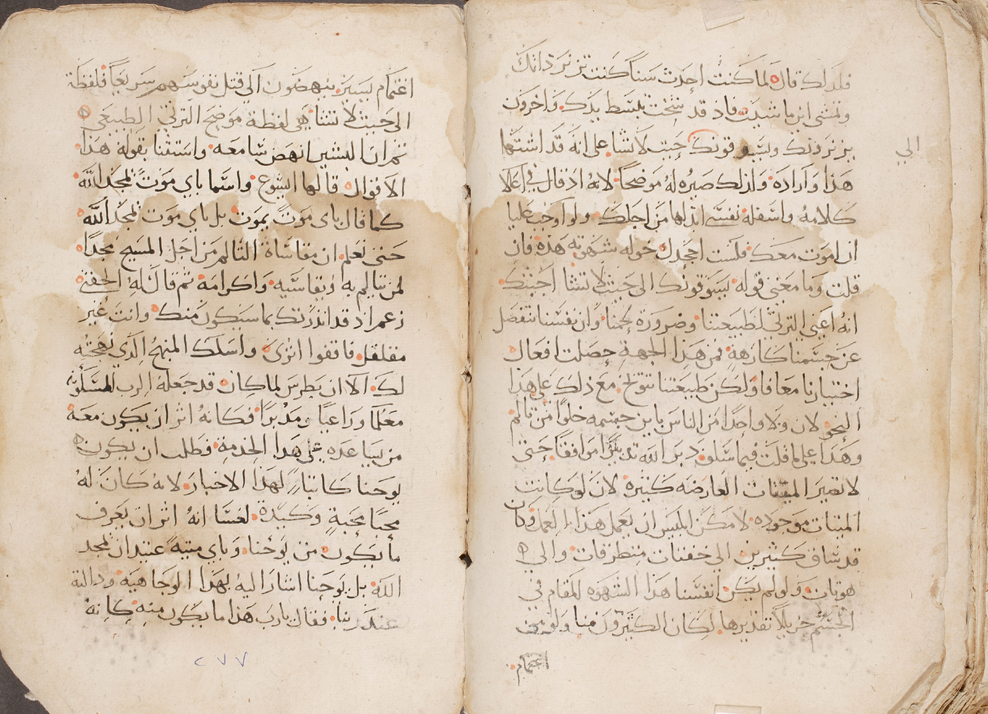 فلذلك قال لما كنت احدث سناً كنت تزنر ذاتك
وتمشي اين ما شيت واذ قد شخت تبسط يدك واخرون
يزنرونك ويسوقونك حيث لا تشا على انه قد اشتها
الى
هذا وآراده ولذلك صيره له موضحاً لانه اذ قال في اعلا
كلامه واسفله نفسي ابذلها من اجلك ولو اوجب عليا
ان اموت معك فلست اجحدك خوله شهوته هذه فان
قلت وما معنى قوله يسوقونك الى حيث لا تشا اجبتك
انه اعني الترتي لطبيعتنا وضرورة لحمنا وان نفسنا تنفصل
عن جسمنا كارهة فمن هذا الجهة حصلت افعال
اختيارنا معافا ولكن طبيعتنا توبخ مع ذلك على هذا
النحو لان ولا واحداً من الناس يباين جسمه خلواً من تالم
وهذا على ما قلت فيما سلف دبر الله تدبيراً موافقا حتى
لا تصير الميتات العارضه كثيره لان لو كانت
الميتات موجوده لا مكن ابليس ان يعمل هذا العمل وكان
قد ساق كثيرين الى خفتات متطرفات والى
هوتات ولو لم يكن لنفسنا هذا الشهوه للمقام في
الجسم جزيلاً تقديرها لكان الكثيرون منا ولو من
اغتمام
اغتمام يسير ينهضون الى قتل نفوسهم سريعاً فلفظة
الى حيث لا تشا هي لفظة موضح الترتي الطبيعي
ثم ان البشير انهض سامعه واستثنا بقوله هذا
الاقوال قالها ايشوع واسما باي موت يمجد الله
كما قال باي موت يموت بل باي موت يمجد الله
حتى تعلم ان مقاساة التالم من اجل المسيح مجداً
لمن تالم به ويقاسيه واكرامه ثم قال له الحقني
زعم اذ قد انذرتك بما سيكون منك وانت غير
مقلقل فاقفوا اثري واسلك المنهج الذي نهجته
لك الا ان بطرس لما كان قد جعله الرب للمسكونة
معلماً وراعياً ومدبراً فكانه اثر ان يكون معه
من يساعده على هذا الخدمه فطلب ان يكون
يوحنا كاتباً لهذا الاخبار لانه كان له
محباً محبة وكيدة لعسا انه اثر ان يعرف
ما يكون من يوحنا وباي ميته عتيد ان يمجد
الله بل يوحنا اشار اليه بهذا الوجاهيه ودالته
عند ربنا فقال يارب هذا ما يكون منه كانه
٢٧٧